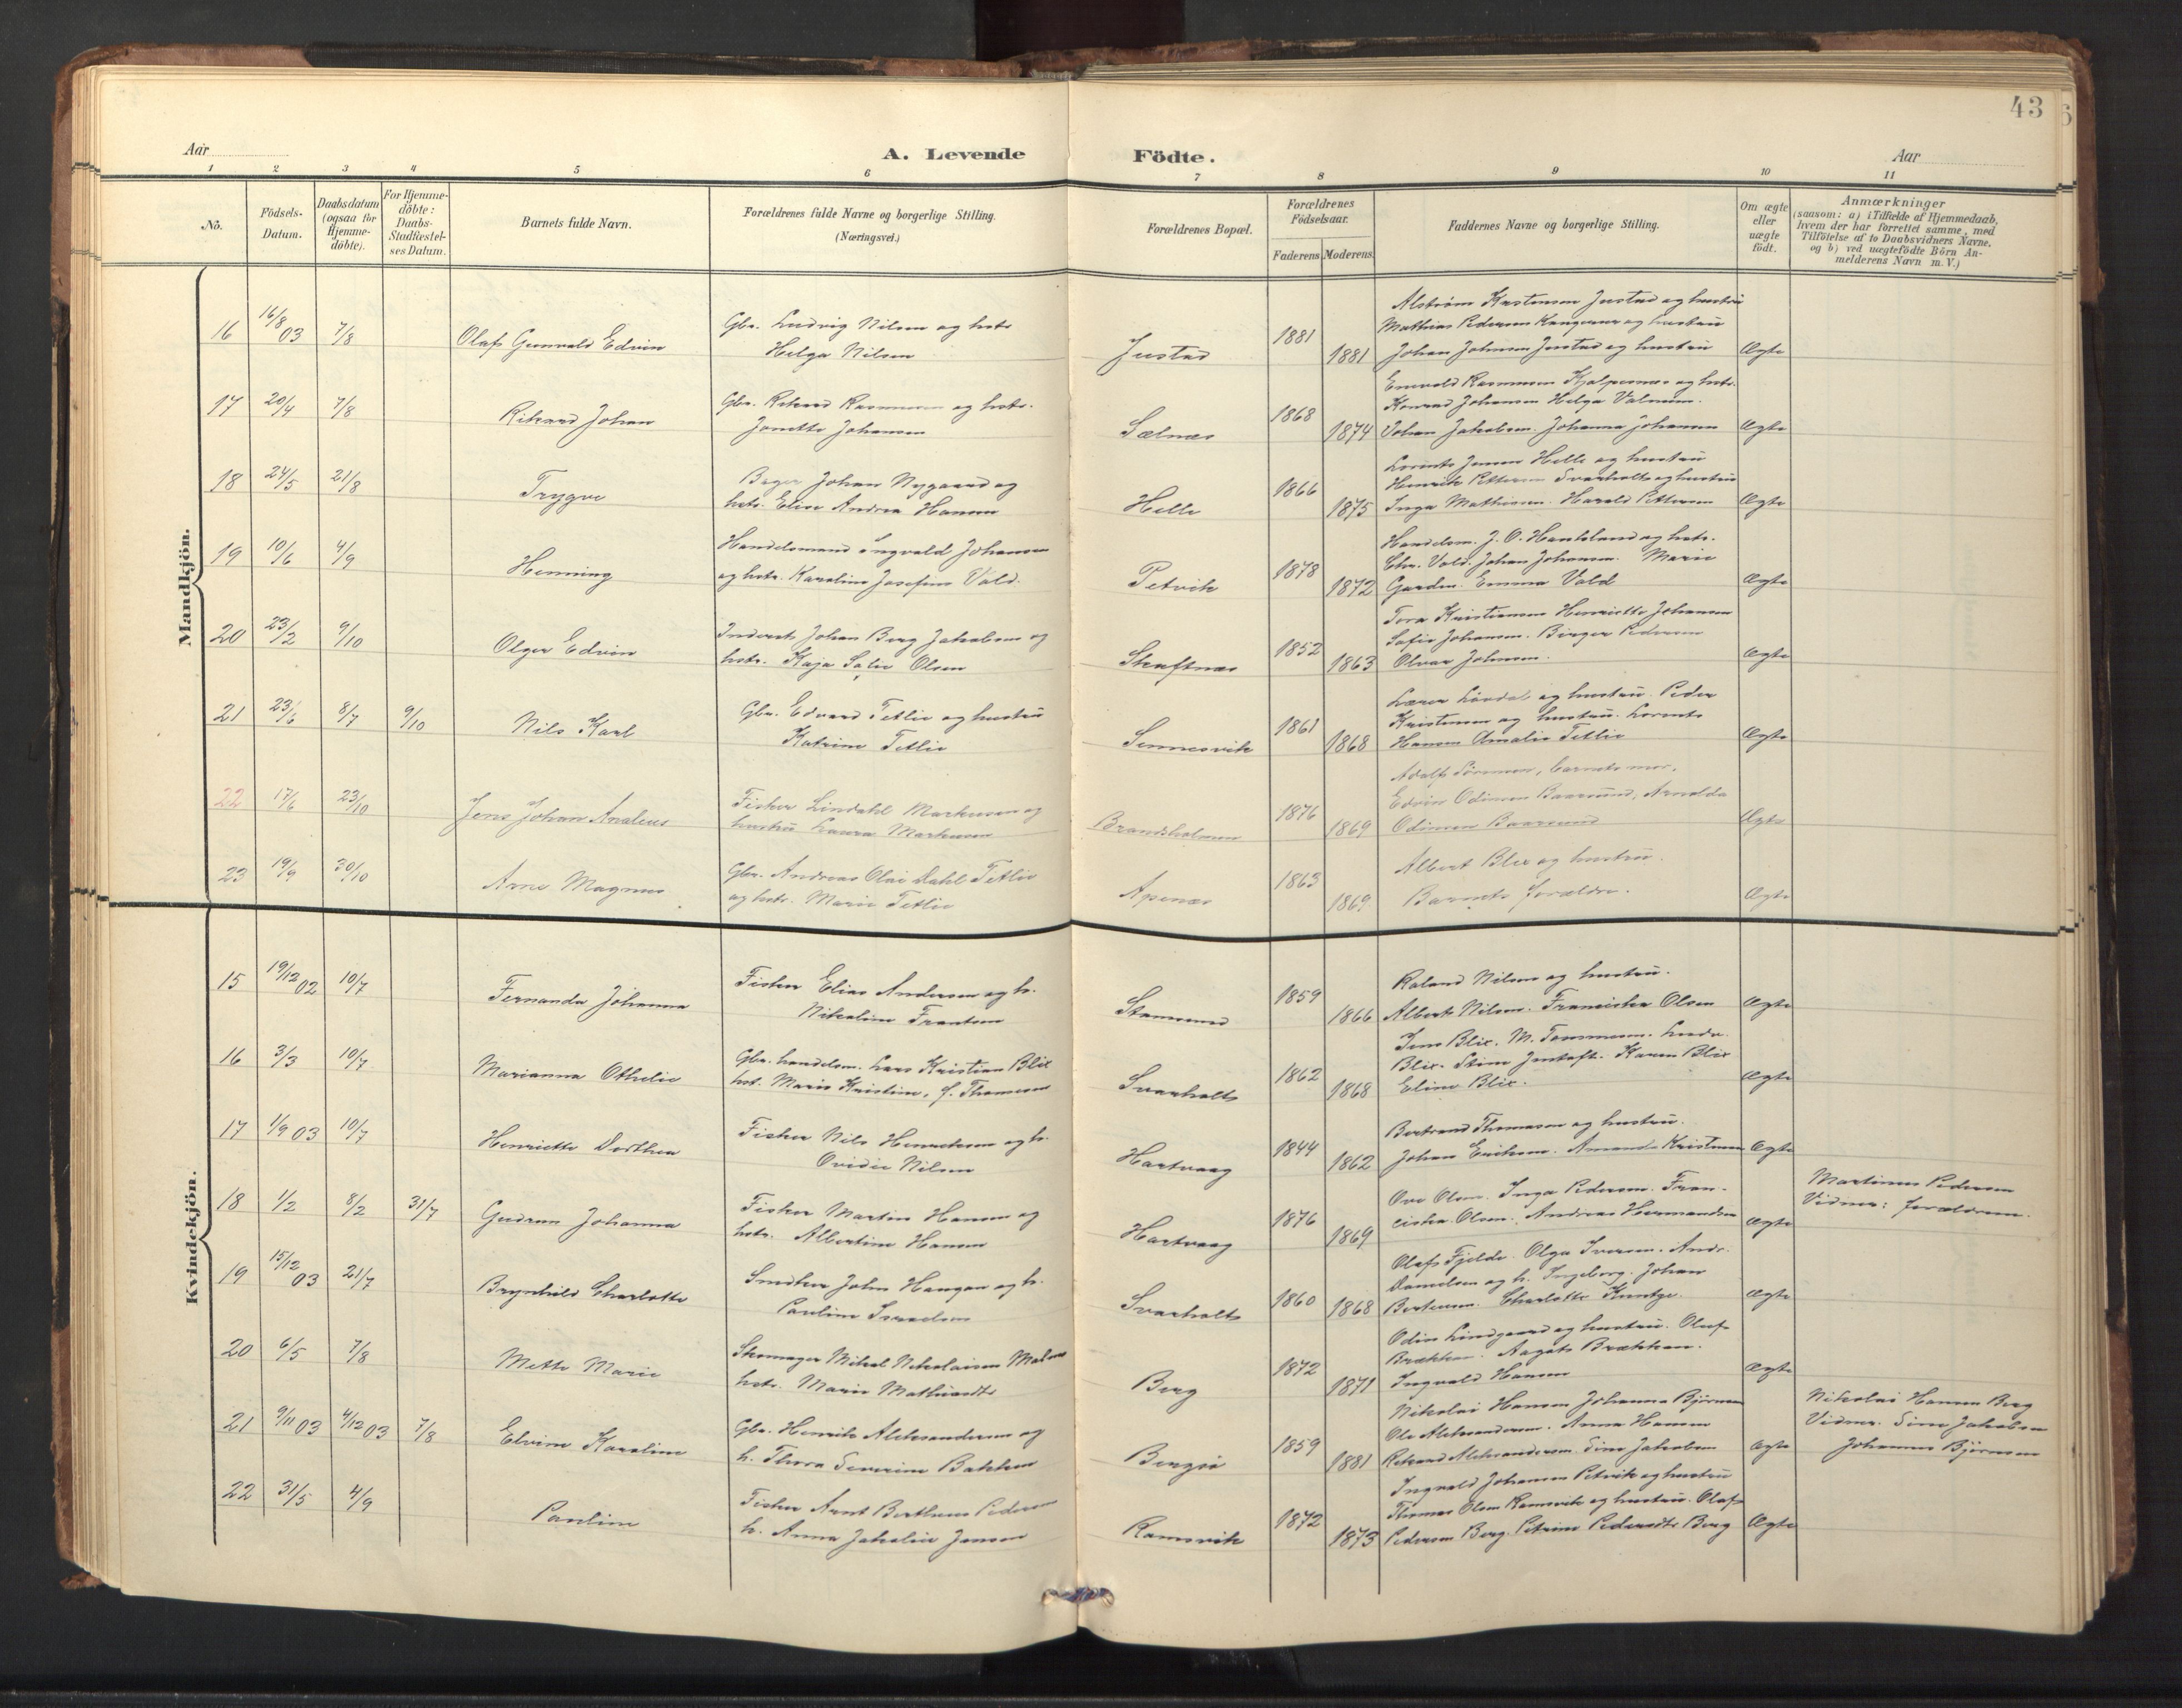 43
Aar
A. Levende
Födte.
Aar
1 2 3 4 5 6 7 8 9 10 11
No.
Födsels-Datum.
Daabsdatum (ogsaa for Hjemme-döbte).
For Hjemme-döbte: Daabs-Stadfæstel-ses Datum.
Barnets fulde Navn.
Forældrenes fulde Navne og borgerlige Stilling.
(Næringsvei.)
Forældrenes Bopæl.
Forældrenes Födselsaar.
Faderens Moderens
Faddernes Navne og borgerlige Stilling.
Om ægte eller uægte födt.
Anmærkninger
(saasom: a) i Tilfælde af Hjemmedaab,
hvem der har forrettet samme, med
Tilföielse af to Daabsvidners Navne,
og b) ved uægtefödte Börn An-
melderens Navn m.V.)
Mandkjön.
16 16/8 03 7/8 Olaf Gunvald Edvin
Gbr. Ludvig Nilsen og hstr
Helga Nilsen
Justad 1881 1881
Alström Kristensen Justad og hustru
Mathias Pedersen og hustru
Johan Johnsen Justad og hustru Ægte
17 20/4 7/8 Rikard Johan
Gbr. Rikard Rasmussen og hstr.
Janette Johansen
Sælnæs 1868 1874
Enevold Rasmussen og hstr.
Konrad Johansen Helga Valnum.
Johan Jakobsen. Johanna Johansen Ægte
18 24/5 21/8 Trygve
Bager Johan Nygaard og
hstr. Elise Andrea Hansen
Helle 1866 1875
Lorents Jensen Helle og hustru
Henrik Pettersen Svarholt og hustru
Inga Mathisen. Harald Pettersen Ægte
19 10/6 4/9 Henning
Handelsmand Ingvald Johansen
og hstr. Karoline Josefine Vold.
Petvik 1878 1872
Handelsm. J. O. Haukland og hstr.
Chr. Vold. Johan Johansen. Marie
Garden. Emma Vold Ægte
20 23/2 9/10 Olger Edvin
Inderst Johan Berg Jakobsen og
hstr. Kaja Olsen
Skaftnæs 1852 1863
Tora Kristiansen Henriette Johansen
Sofie Johansen. Birger Pedersen
Olvar Johnsen. Ægte
21 23/6 8/7 9/10 Nils Karl
Gbr. Edvard Tetlie og hustru
Katrine Tetlie
Sennesvik 1861 1868
Lærer og hustru. Peder
Kristensen og hustru. Lorents
Hansen Amalie Tetlie Ægte
22 17/6 23/10 Jens Johan Analeus
Fisker Lindahl Markussen og
hustru Laura Markussen
Brandsholmen 1876 1869
Adolf Sörensen, barnets mor,
Edvin Odinsen Baarsund, Arnolda
Odinsen Baarsund Ægte
23 19/9 30/10 Arne Magnus
Gbr. Andreas Olai Dahl Tetlie
og hstr. Marie Tetlie
Apenæs 1863 1869
Albert Blix og hustru.
Barnets forældre. Ægte
Kvindekjön.
15 19/12 02 10/7 Fernanda Johanna
Fisker Elias Andersen og h.
Nikoline Frantsen
Stamsund 1859 1866
Roland Nilsen og hustru.
Albert Nilsen. Franciska Olsen Ægte
16 3/3 10/7 Marianna Othelie
Gbr. handelsm. Lars Kristian Blix
hst. Maria Kristine, f. Thomesen
Svarholt 1862 1868
Jens Blix. M. Tommesen.
Blix. Stine Karen Blix
Eline Blix. Ægte
17 1/9 03 10/7 Henriette Dorthea
Fisker Nils Henriksen og h.
Ovidie Nilsen
Hartvaag 1844 1862
Bertrand Thomassen og hustru.
Johan Eriksen. Amanda Kristensen Ægte
18 1/2 8/2 31/7 Gudrun Johanna
Fisker Martin Hansen og
hstr. Albertine Hansen
Hartvaag 1876 1869
Ove Olsen. Inga Pedersen. Fran-
ciska Olsen. Andreas Hermansen Ægte
Martinus Pedersen
Vidner: forældrene.
19 15/12 03 21/7 Brynhild Charlotte
Snedker John Haugan og h.
Pauline Israelsen
Svarholt 1860 1868
Olaf Fjelde. Olga Iversen. Andr.
Danielsen og h. Ingeborg. Johan
Bertensen. Charlotte Kuntze. Ægte
20 6/5 7/8 Mette Marie
Skomager Mikal Nikolaisen Malnes
hstr. Marie Mathisdtr
Berg 1872 1871
Odin Lindgaard og hustru. Oluf
Brækkan. Aagot Brækkan.
Ingvald Hansen Ægte
21 9/11 03 4/12 03 7/8 Elvine Karoline
Gbr. Henrik Aleksandersen og
h. Thora Severine Bakken
Bergsö 1859 1881
Nikolai Hansen Johanna Björnsen
Ole Aleksandersen. Anna Hansen
Rikard Aleksandersen. Sine Jakobsen Ægte
Nikolai Hansen Berg
Vidner. Sine Jakobsen
Johannes Björnsen
22 31/5 4/9 Pauline
Fisker Arnt Bertheus Pedersen
h. Anna Jakobie Jensen
Ramsvik 1872 1873
Ingvald Johansen Petvik og hustru
Thomas Olsen Ramsvik og hustru. Olaf
Pedersen Berg. Petrine Pedersdtr Berg Ægte